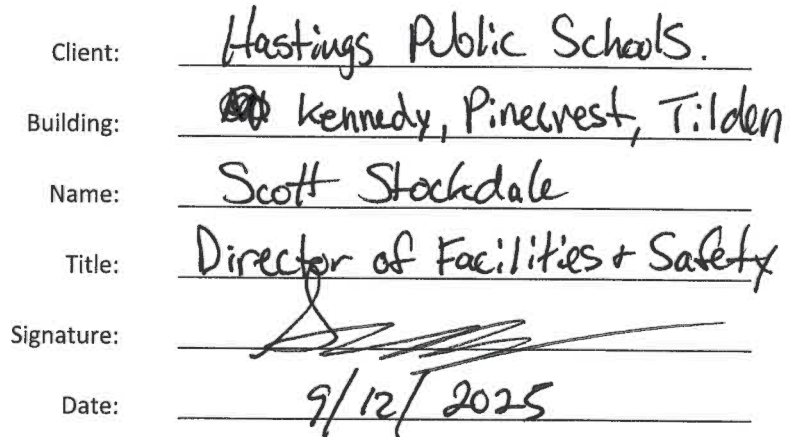 Client: Hastings Public Schools.
Building: Kennedy, Pinecrest, Tilden
Name: Scott Stockdale
Title: Director of Facilities + Safety
Signature:
Date: 9/12/2025